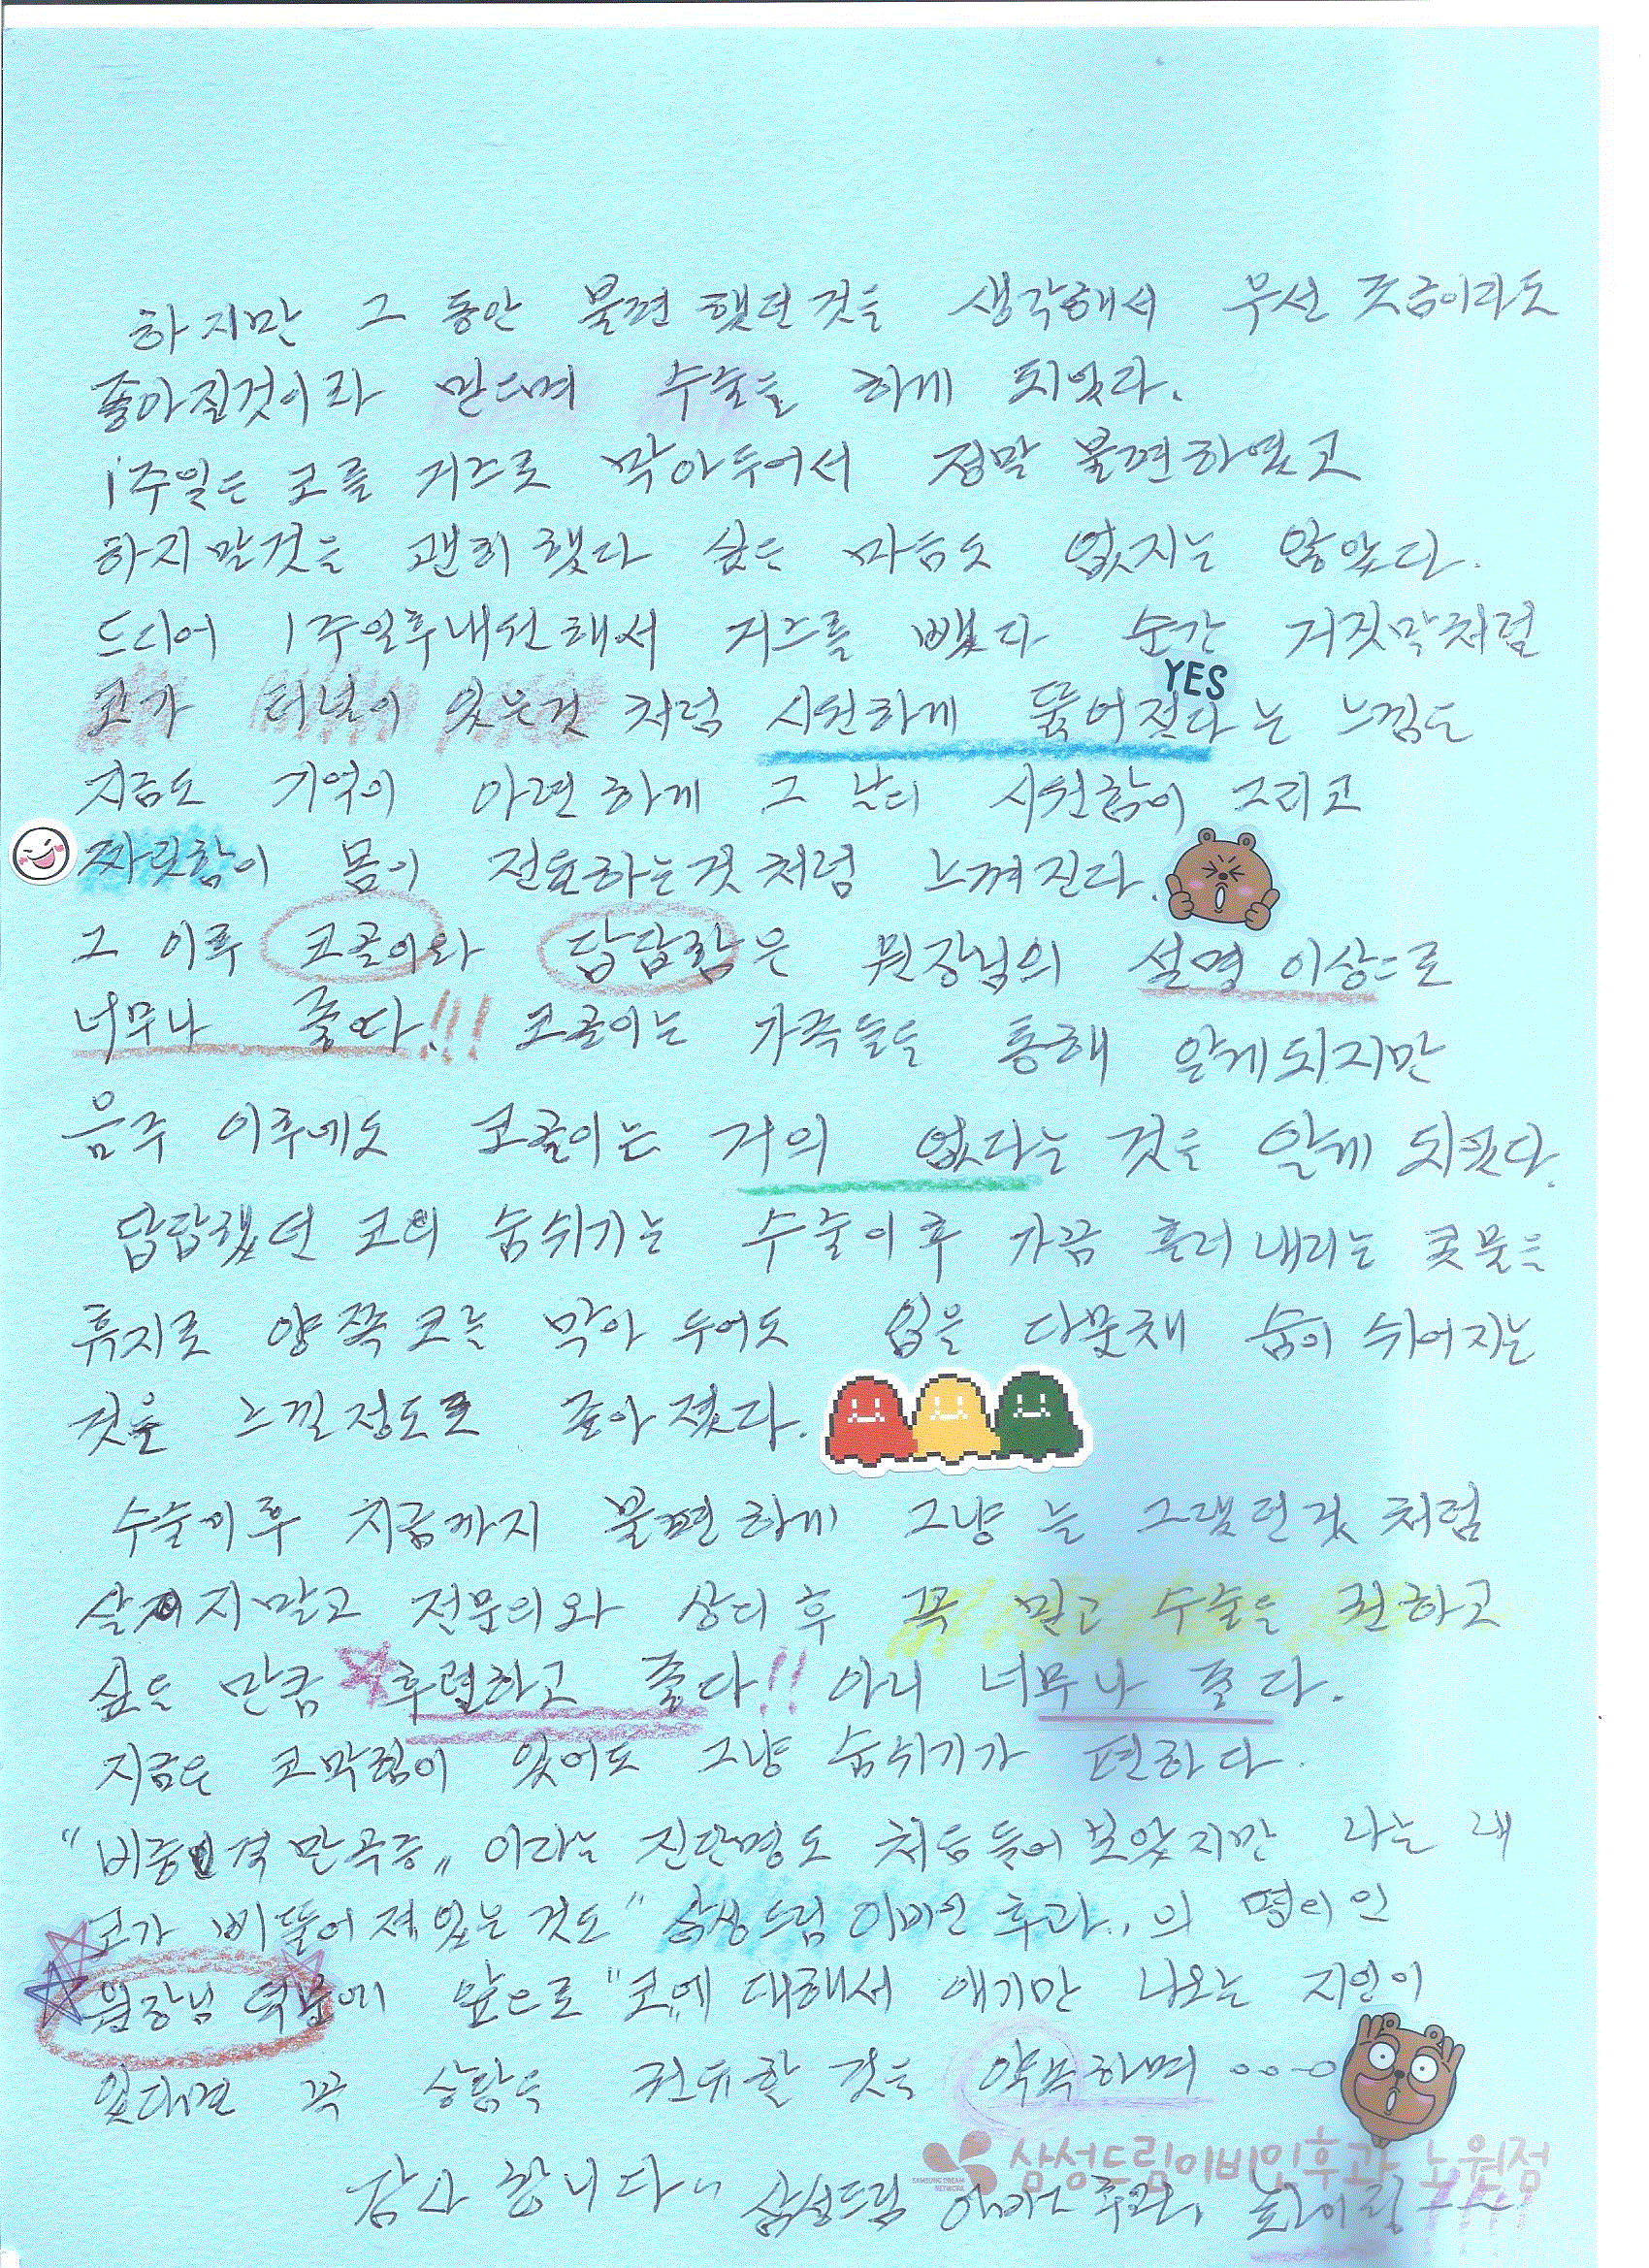 하지만 그 동안 불편했던것을 생각해서 우선 조금이라도
좋아질것이라 믿으며 수술을 하게 되었다.
1주일은 코를 거즈로 막아두어서 정말 불편하였고
하지말것을 괜히했다 싶은 마음도 없지는 않았다.
드디어 1주일후내원해서 거즈를 뺐다 순간 거짓막처럼
YES
코가 터널이 있는것 처럼 시원하게 뚫어졌다는 느낌은
지금도 기억이 아련하게 그 날의 시원함이 그리고
짜릿함이 몸이 전율하는것처럼 느껴진다.
그 이후 코골이와 답답함은 원장님의 설명 이상으로
너무나 좋다!!! 코골이는 가족들을 통해 알게되지만
음주 이후에도 코골이는 거의 없다는 것을 알게 되었다.
답답했던 코의 숨쉬기는 수술이후 가끔 흘러내리는 콧물을
휴지로 양쪽코를 막아 두어도 입을 다문채 숨이 쉬어지는
것을 느낄정도로 좋아졌다.
수술이후 지금까지 불편하게 그냥 늘 그랬던것 처럼
살지말고 전문의와 상의 후 꼭 믿고 수술을 권하고
싶을 만큼 후련하고 좋다!! 아니 너무나 좋다.
지금은 코막힘이 있어도 그냥 숨쉬기가 편하다.
"비중격만곡증" 이라는 진단명도 처음들어보았지만 나는 내
코가 삐뚤어져있는것도 "삼성드림이비인후과"의 명의인
원장님 덕분에 앞으로 "코"에 대해서 얘기만 나오는 지인이
있다면 꼭 상담을 권유할 것을 약속하며
삼성드림이비인후과 노원점
SAMSUNG DREAM NETWORK
감사합니다" 삼성드림 이비인후과,